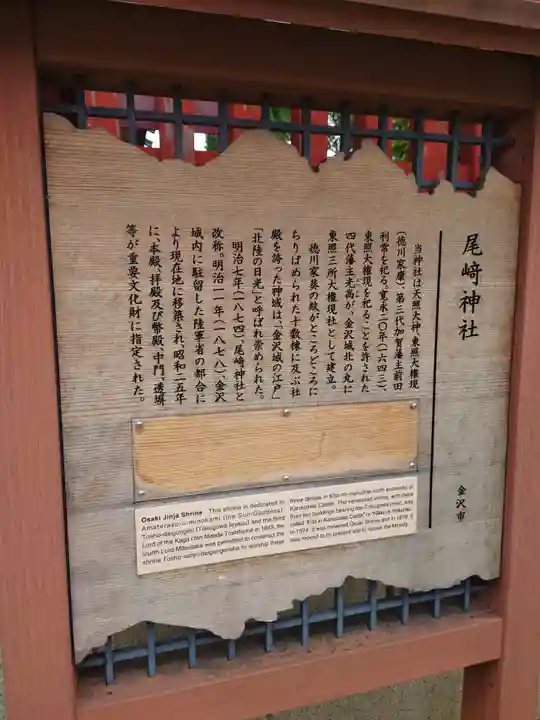 尾﨑神社
金沢市
当神社は天照大神、東照大権現
(徳川家康)、第三代加賀藩主前田
利常を祀る。寛永二〇年(一六四三)、
東照大権現を祀ることを許された
四代藩主光高が、金沢城北の丸に
東照三所大権現社として建立。
徳川家葵の紋がところどころに
ちりばめられた十数棟に及ぶ社
殿を誇った神域は、「金沢城の江戸」
「北陸の日光」と呼ばれ崇められた。
明治七年(一八七四)、尾﨑神社と
改称。明治一一年(一八七八)、金沢
城内に駐留した陸軍省の都合に
より現在地に移築され、昭和二五年
に、本殿、拝殿及び幣殿、中門、透塀
等が重要文化財に指定された。
Osaki Jinja Shrine This shrine is dedicated to
Amaterasu-o-mikokami (the Sun-Goddess)
Tosho-daigongen (Tokugawa Ieyasu) and the third
Lord of the Kaga clan Maeda Toshitsune. In 1643, the
fourth Lord Mitsutaka was permitted to construct the
shrine Tosho-sanjo-daigongensha to worship these
three deities in Kita-no-maru(the north
Kanazawa Castle. The venerated shrine, with more
than ten buildings bearing the Tokugawa crest, was
called "Edo at Kanazawa Castle" or "Nikko in Hokuriku."
In 1874 it was renamed Osaki Shrine and in 1878 it
was moved to its present site to house the Ministry